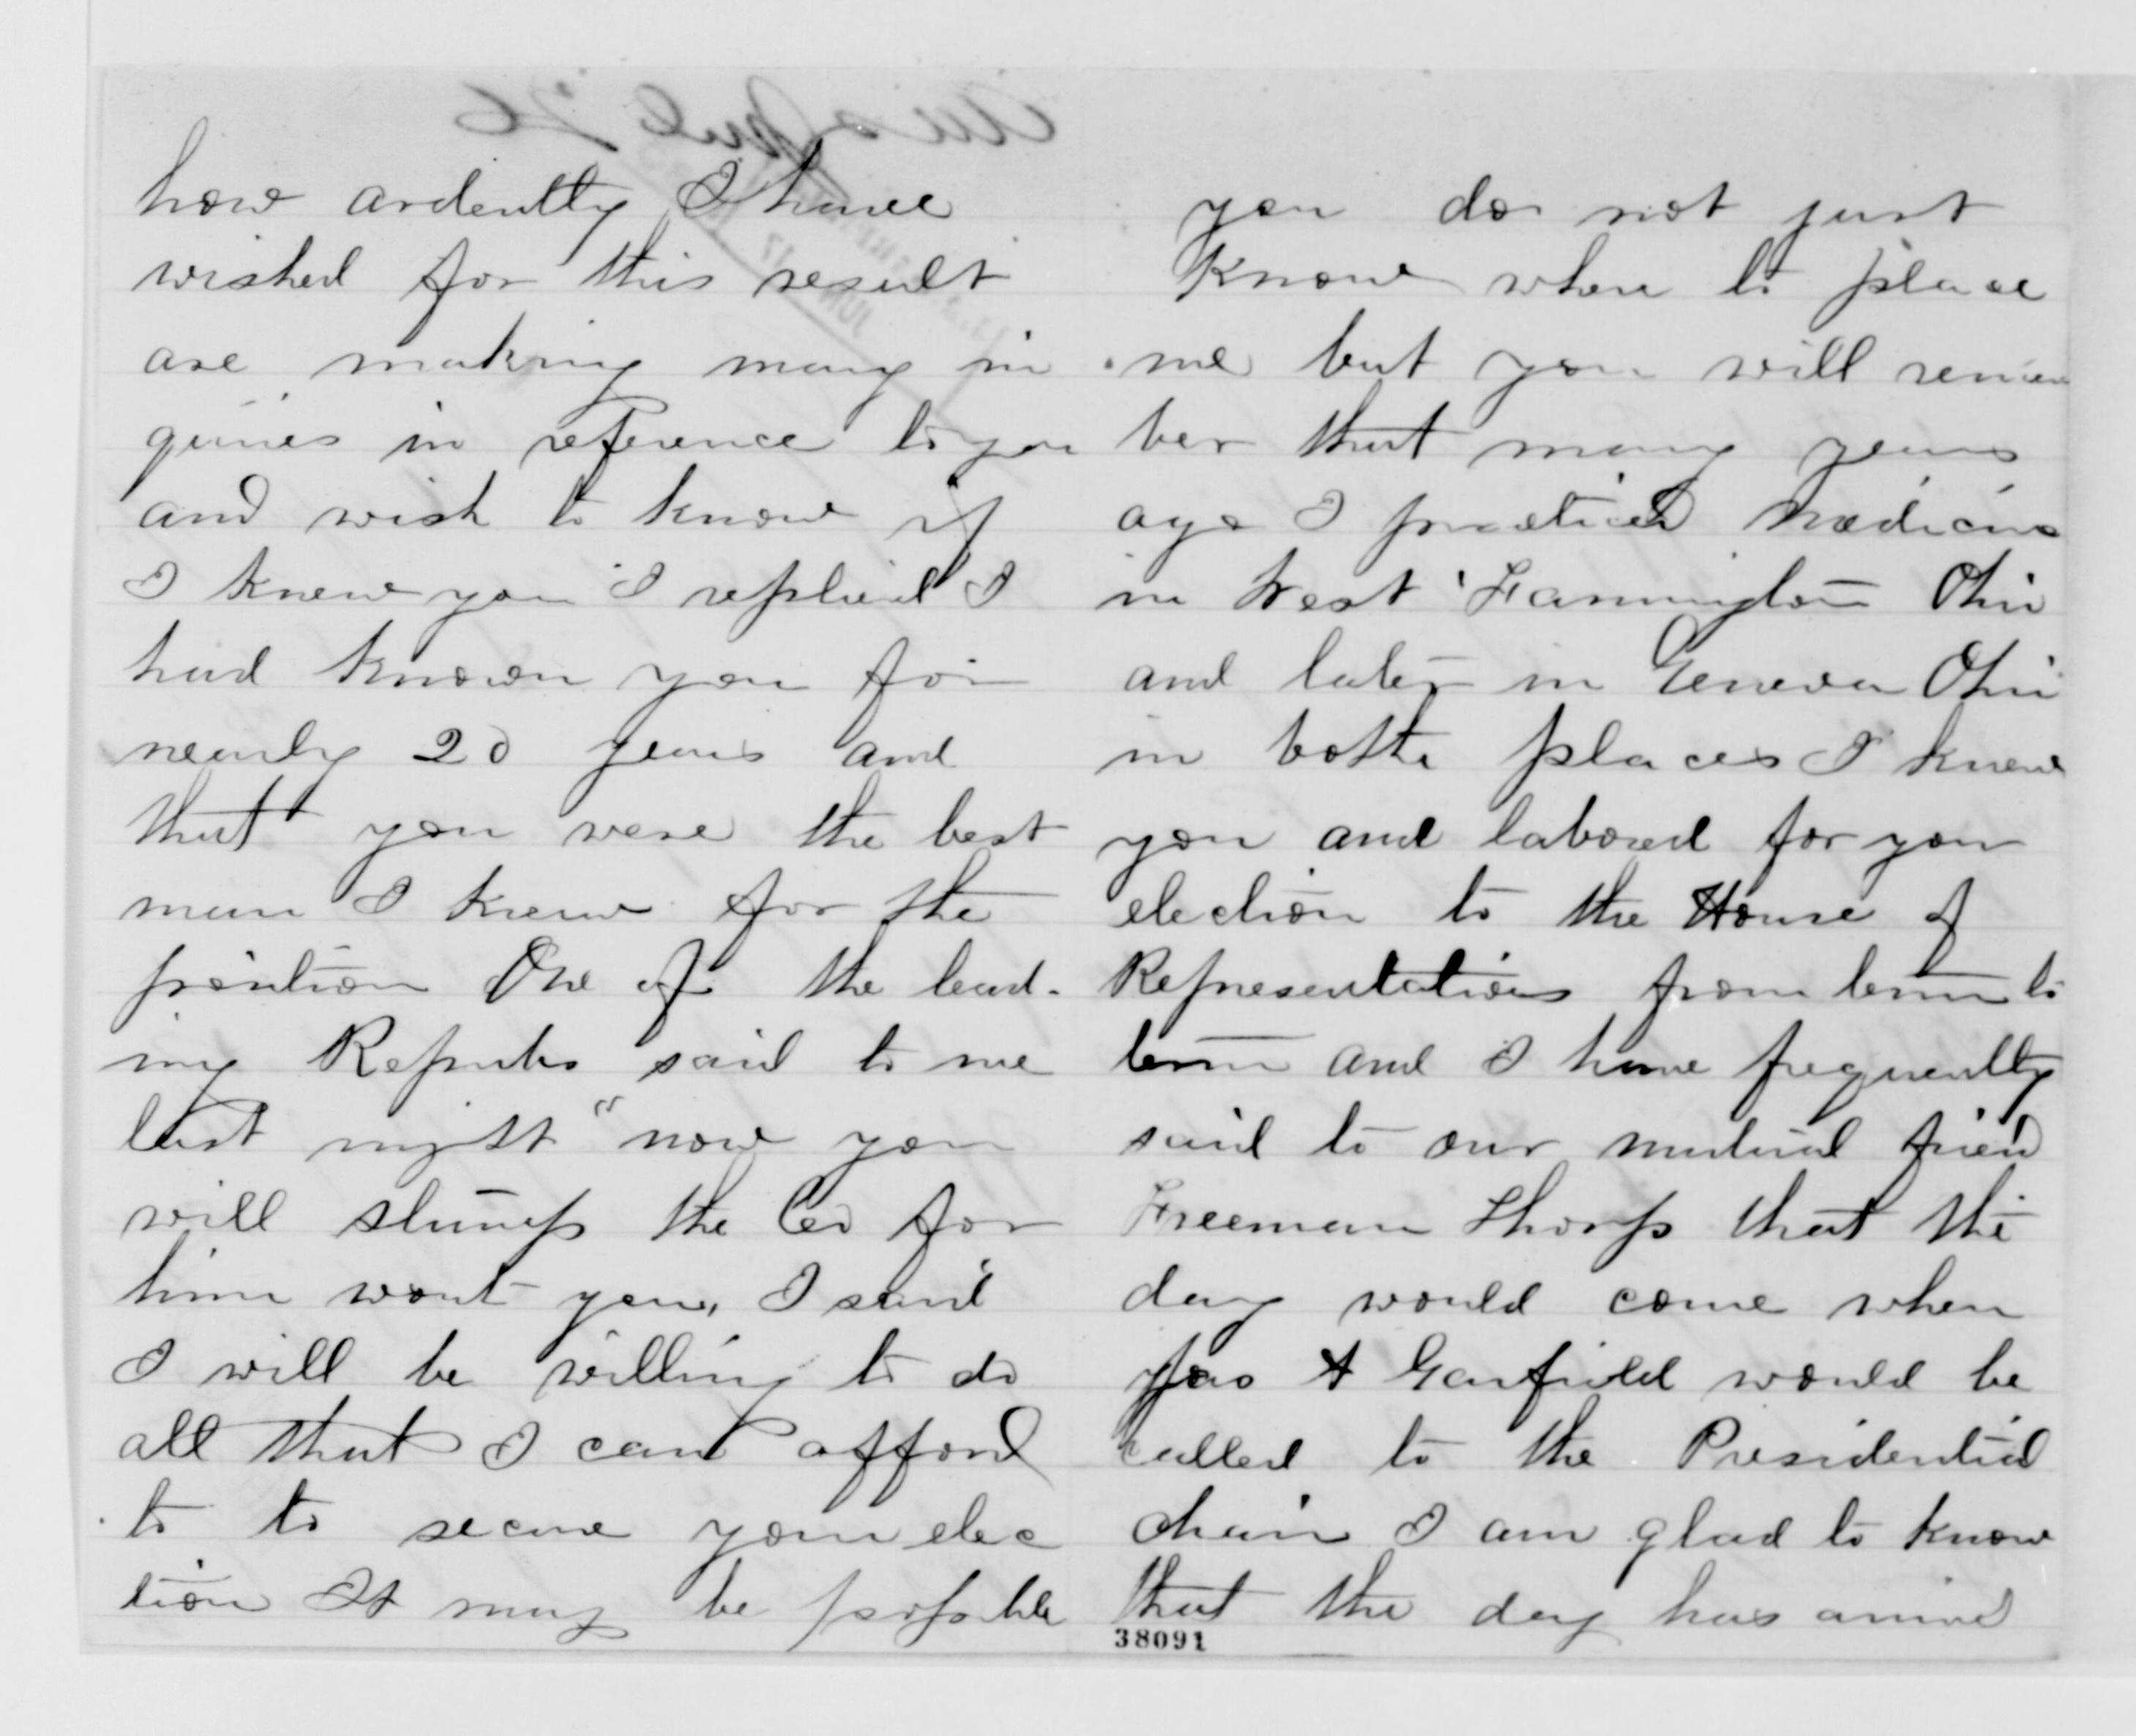 how ardently I have
wished for this result
are making many in
quiries in reference to you
and wish to know if
I knew you I replied I
had known you for
nearly 20 years and
that you were the best
man I knew for the
position One of the lead-
ing Repubs said to me
last night "now you
will stump the Co for
him wont you, I said
I will be willing to do
all that I can afford
to to secure your elec
tion It may be possible
you do not just
know where to place
me but you will remem
ber that many years
ago I practiced medicine
in West Farmington Ohio
and later in Geneva Ohio
in both places I knew
you and labored for your
election to the House of
Representatives from term to
term and I have frequently
said to our mutual friend
Freeman Thorp that the
day would come when
Jas A Garfield would be
called to the Presidential
chair I am glad to know
that the day has arrived
38091